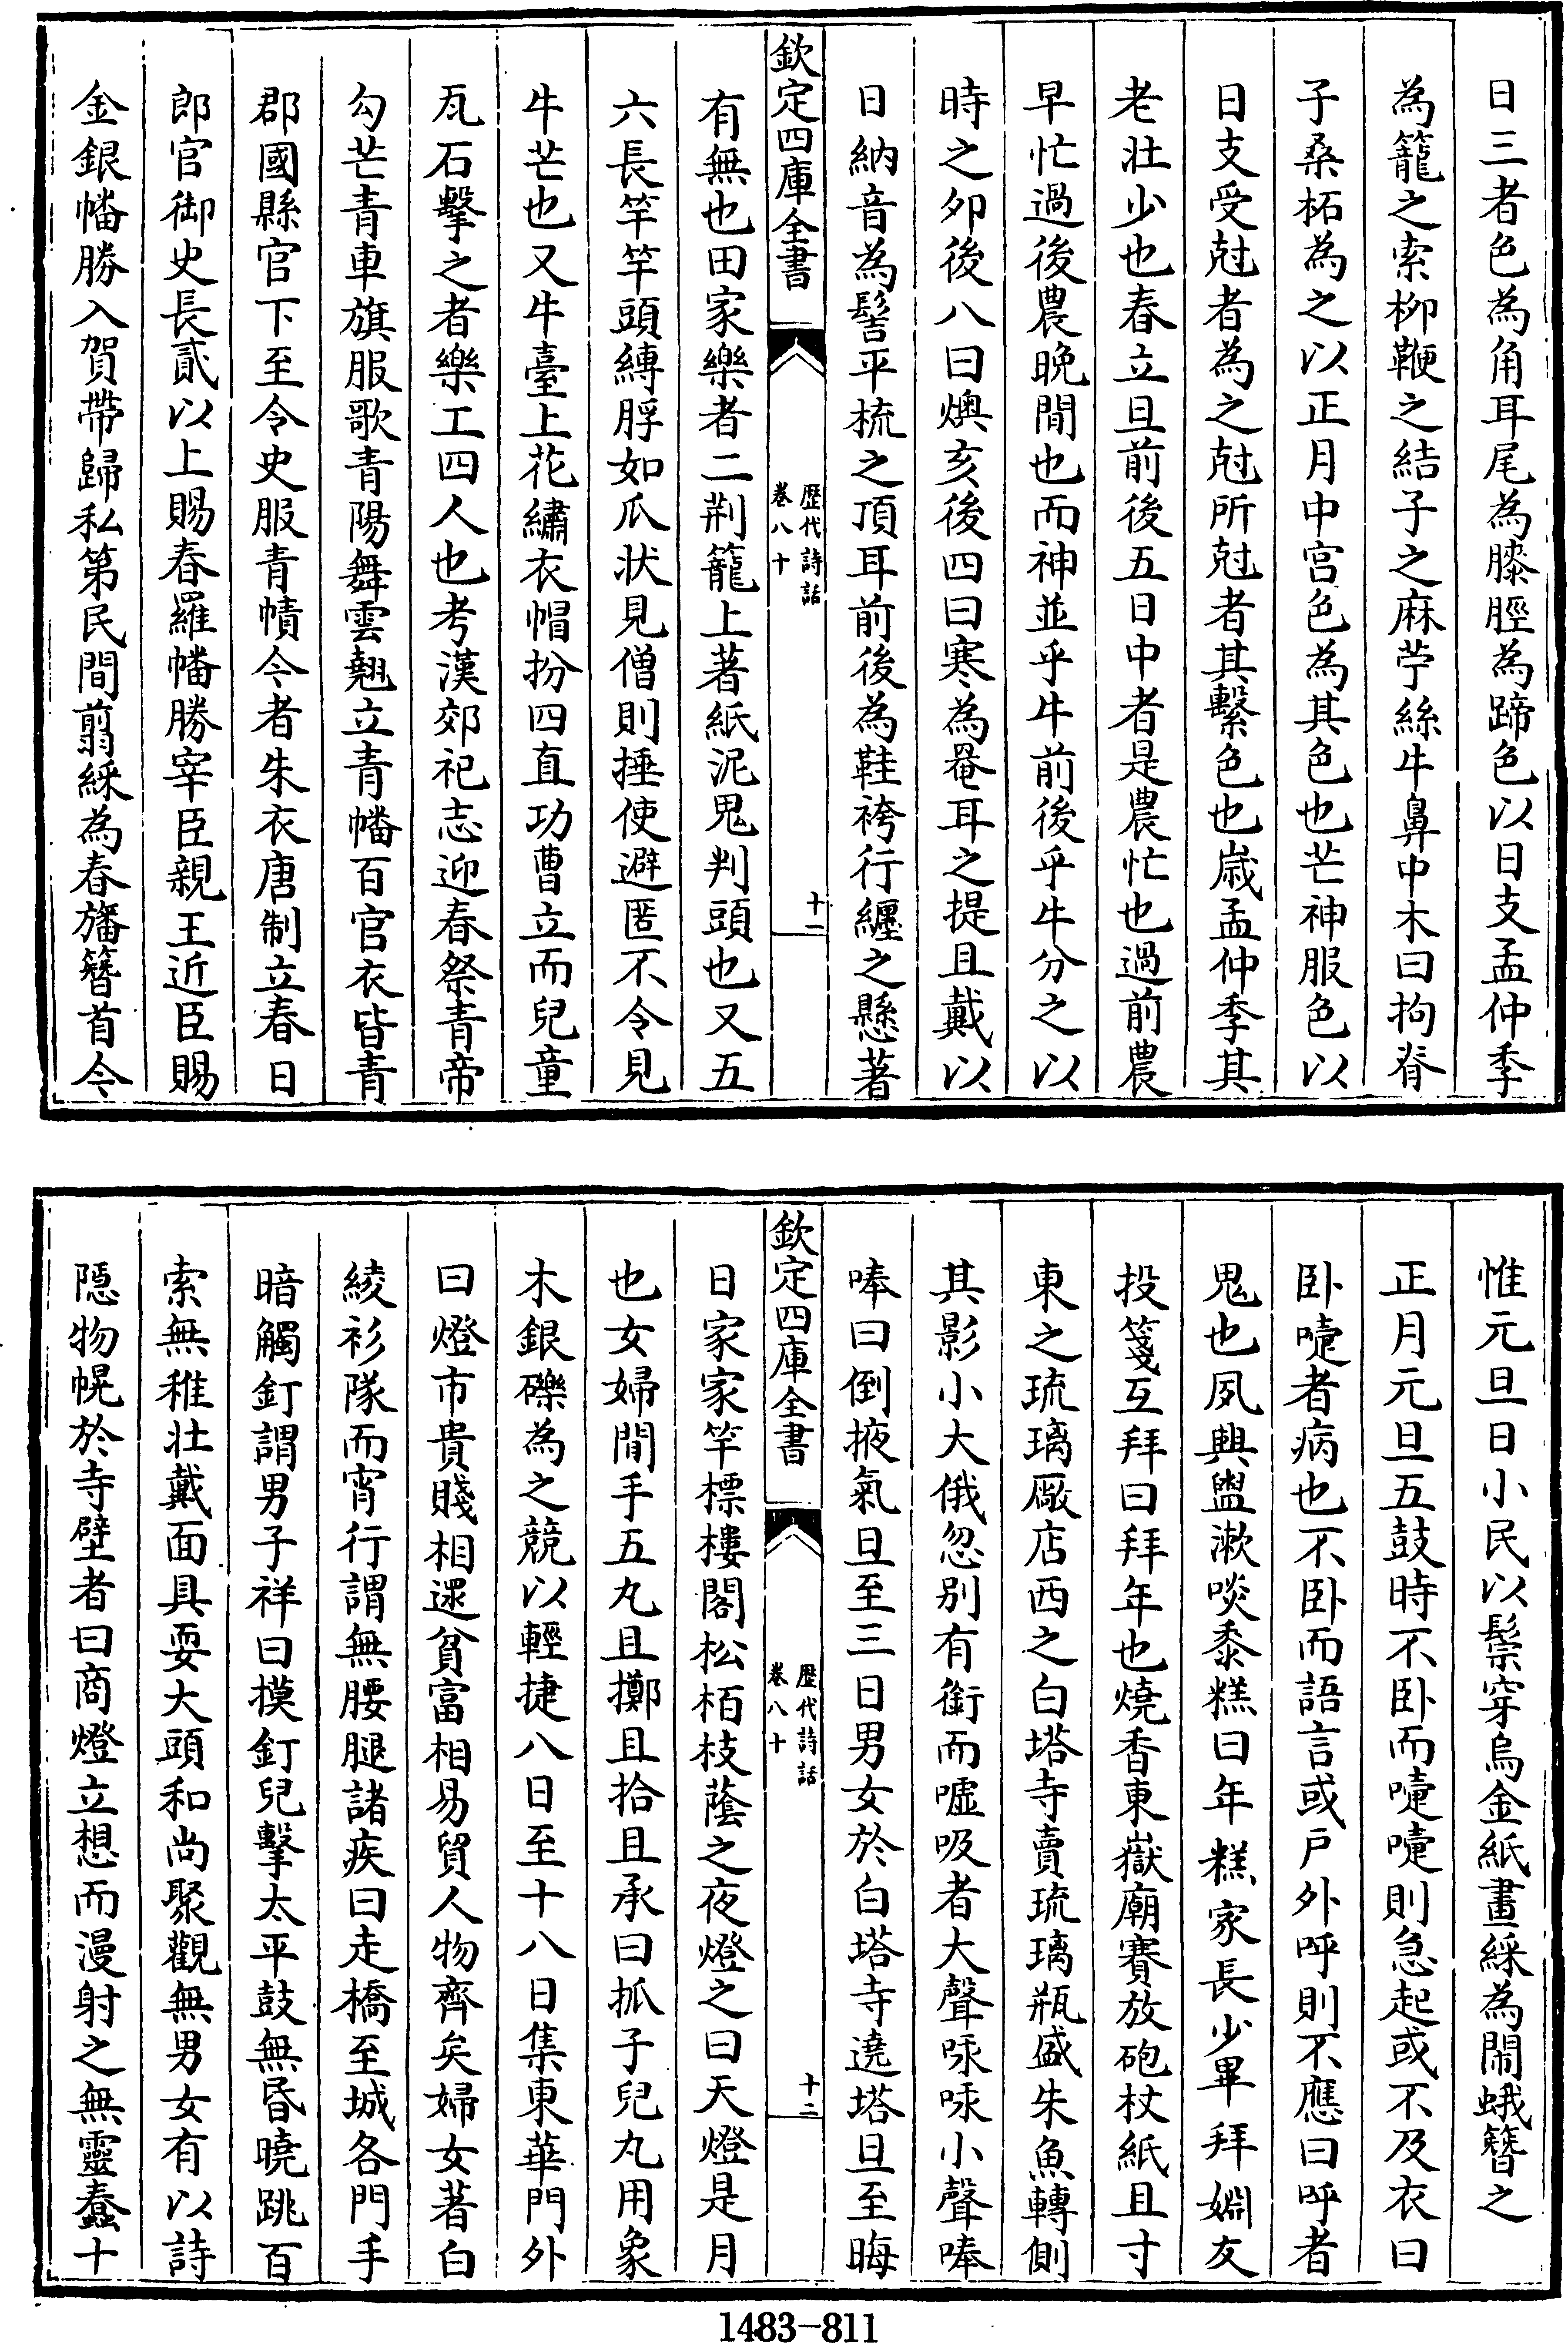 日三者色為角耳尾為膝脛為蹄色以日支孟仲季
為籠之索柳鞭之結子之麻苧絲牛鼻中木曰拘脊
子桑柘為之以正月中宫色為其色也芒神服色以
日支受尅者為之尅所尅者其繫色也歲孟仲季其
老壮少也春立旦前後五日中者是農忙也過前農
早忙過後農晚閒也而神並乎牛前後乎牛分之以
時之夘後八曰燠亥後四曰寒為罨耳之提且戴以
日納音為髻平梳之頂耳前後為鞋袴行纒之懸著
欽定四庫全書
歴代詩話
卷八十
十一
有無也田家樂者二荆籠上著紙泥鬼判頭也又五
六長竿竿頭縛脬如瓜狀見僧則捶使避匿不令見
牛芒也又牛臺上花繡衣帽扮四直功曹立而兒童
瓦石擊之者樂工四人也考漢郊祀志迎春祭青帝
勾芒青車旗服歌青陽舞雲翹立青幡百官衣皆青
郡國縣官下至令史服青幘今者朱衣唐制立春日
郎官御史長貳以上賜春羅幡勝宰臣親王近臣賜
金銀幡勝入賀帶歸私第民間翦綵為春旛簪首今
惟元旦日小民以鬃穿烏金紙畫綵為閙蛾簪之
正月元旦五鼓時不卧而嚏嚏則急起或不及衣曰
卧嚏者病也不卧而語言或户外呼則不應曰呼者
鬼也夙興盥漱啖黍糕曰年糕家長少畢拜婣友
投箋互拜曰拜年也燒香東嶽廟賽放砲杖紙且寸
東之琉璃厰店西之白塔寺賣琉璃瓶盛朱魚轉側
其影小大俄忽别有銜而嘘吸者大聲𠵩𠵩小聲唪
唪曰倒掖氣旦至三日男女於白塔寺遶塔旦至晦
欽定四庫全書
歴代詩話
卷八十
十二
日家家竿標樓閣松栢枝蔭之夜燈之曰天燈是月
也女婦閒手五丸且擲且拾且承曰抓子兒丸用象
木銀礫為之競以輕捷八日至十八日集東華門外
曰燈市貴賤相遝貧富相易貿人物齊矣婦女著白
綾衫隊而宵行謂無腰腿諸疾曰走橋至城各門手
暗觸釘謂男子祥曰摸釘兒擊太平鼓無昏曉跳百
索無稚壮戴面具耍大頭和尚聚觀無男女有以詩
隠物幌於寺壁者曰商燈立想而漫射之無靈蠢十
1483-811